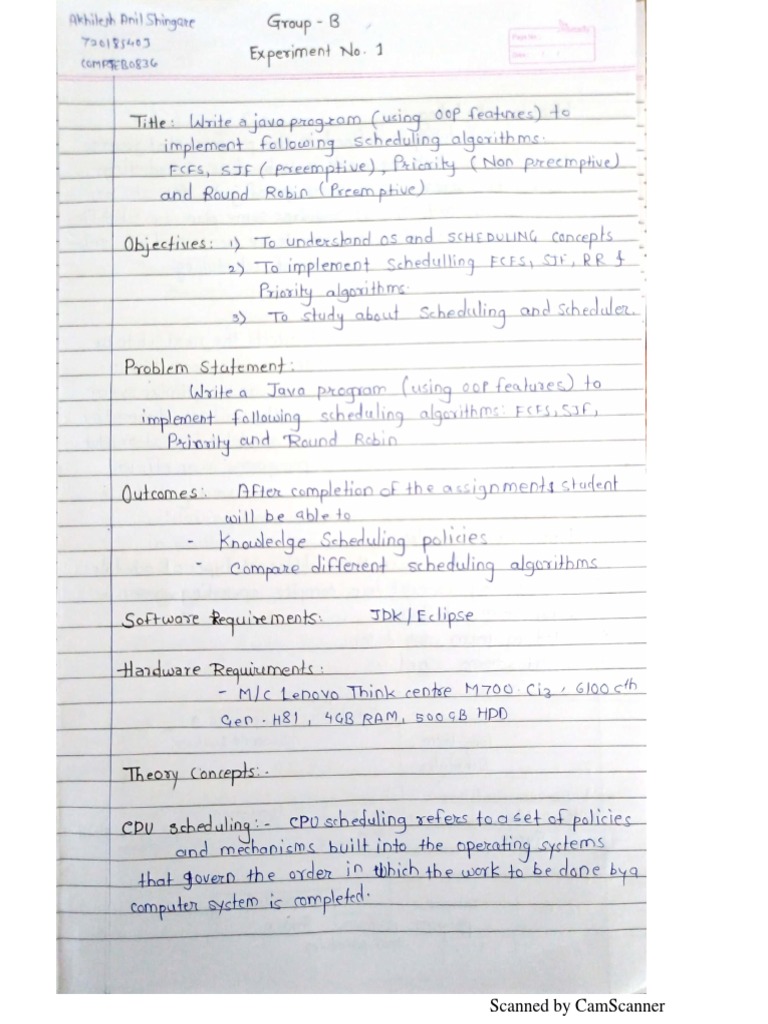 Akhilesh Anil Shingare
Group - B
72018540J
Experiment No. 1
COMPTEB0836
Page No.:
Date: / /
Title: Write a java program (using OOP features) to
implement following scheduling algorithms.
FCFS, SJF (preemptive), Priority (Non preemptive)
and Round Robin (Preemptive)
Objectives: 1) To understand OS and SCHEDULING concepts
2) To implement Schedulling FCFS, SJF, RR &
Priority algorithms.
3) To study about Scheduling and Scheduler.
Problem Statement:
Write a Java program (using OOP features) to
implement following scheduling algorithms: FCFS, SJF,
Priority and Round Robin
Outcomes: After completion of the assignments student
will be able to
- Knowledge Scheduling policies
- Compare different scheduling algorithms
Software Requirements: JDK/Eclipse
Hardware Requirements:
- M/C Lenovo Think centre M700. Ci3, 6100 6th
Gen. H81, 4GB RAM, 500GB HDD
Theory Concepts:-
CPU Scheduling:- CPU scheduling refers to a set of policies
and mechanisms built into the operating systems
that govern the order in which the work to be done by a
computer system is completed.
Scanned by CamScanner